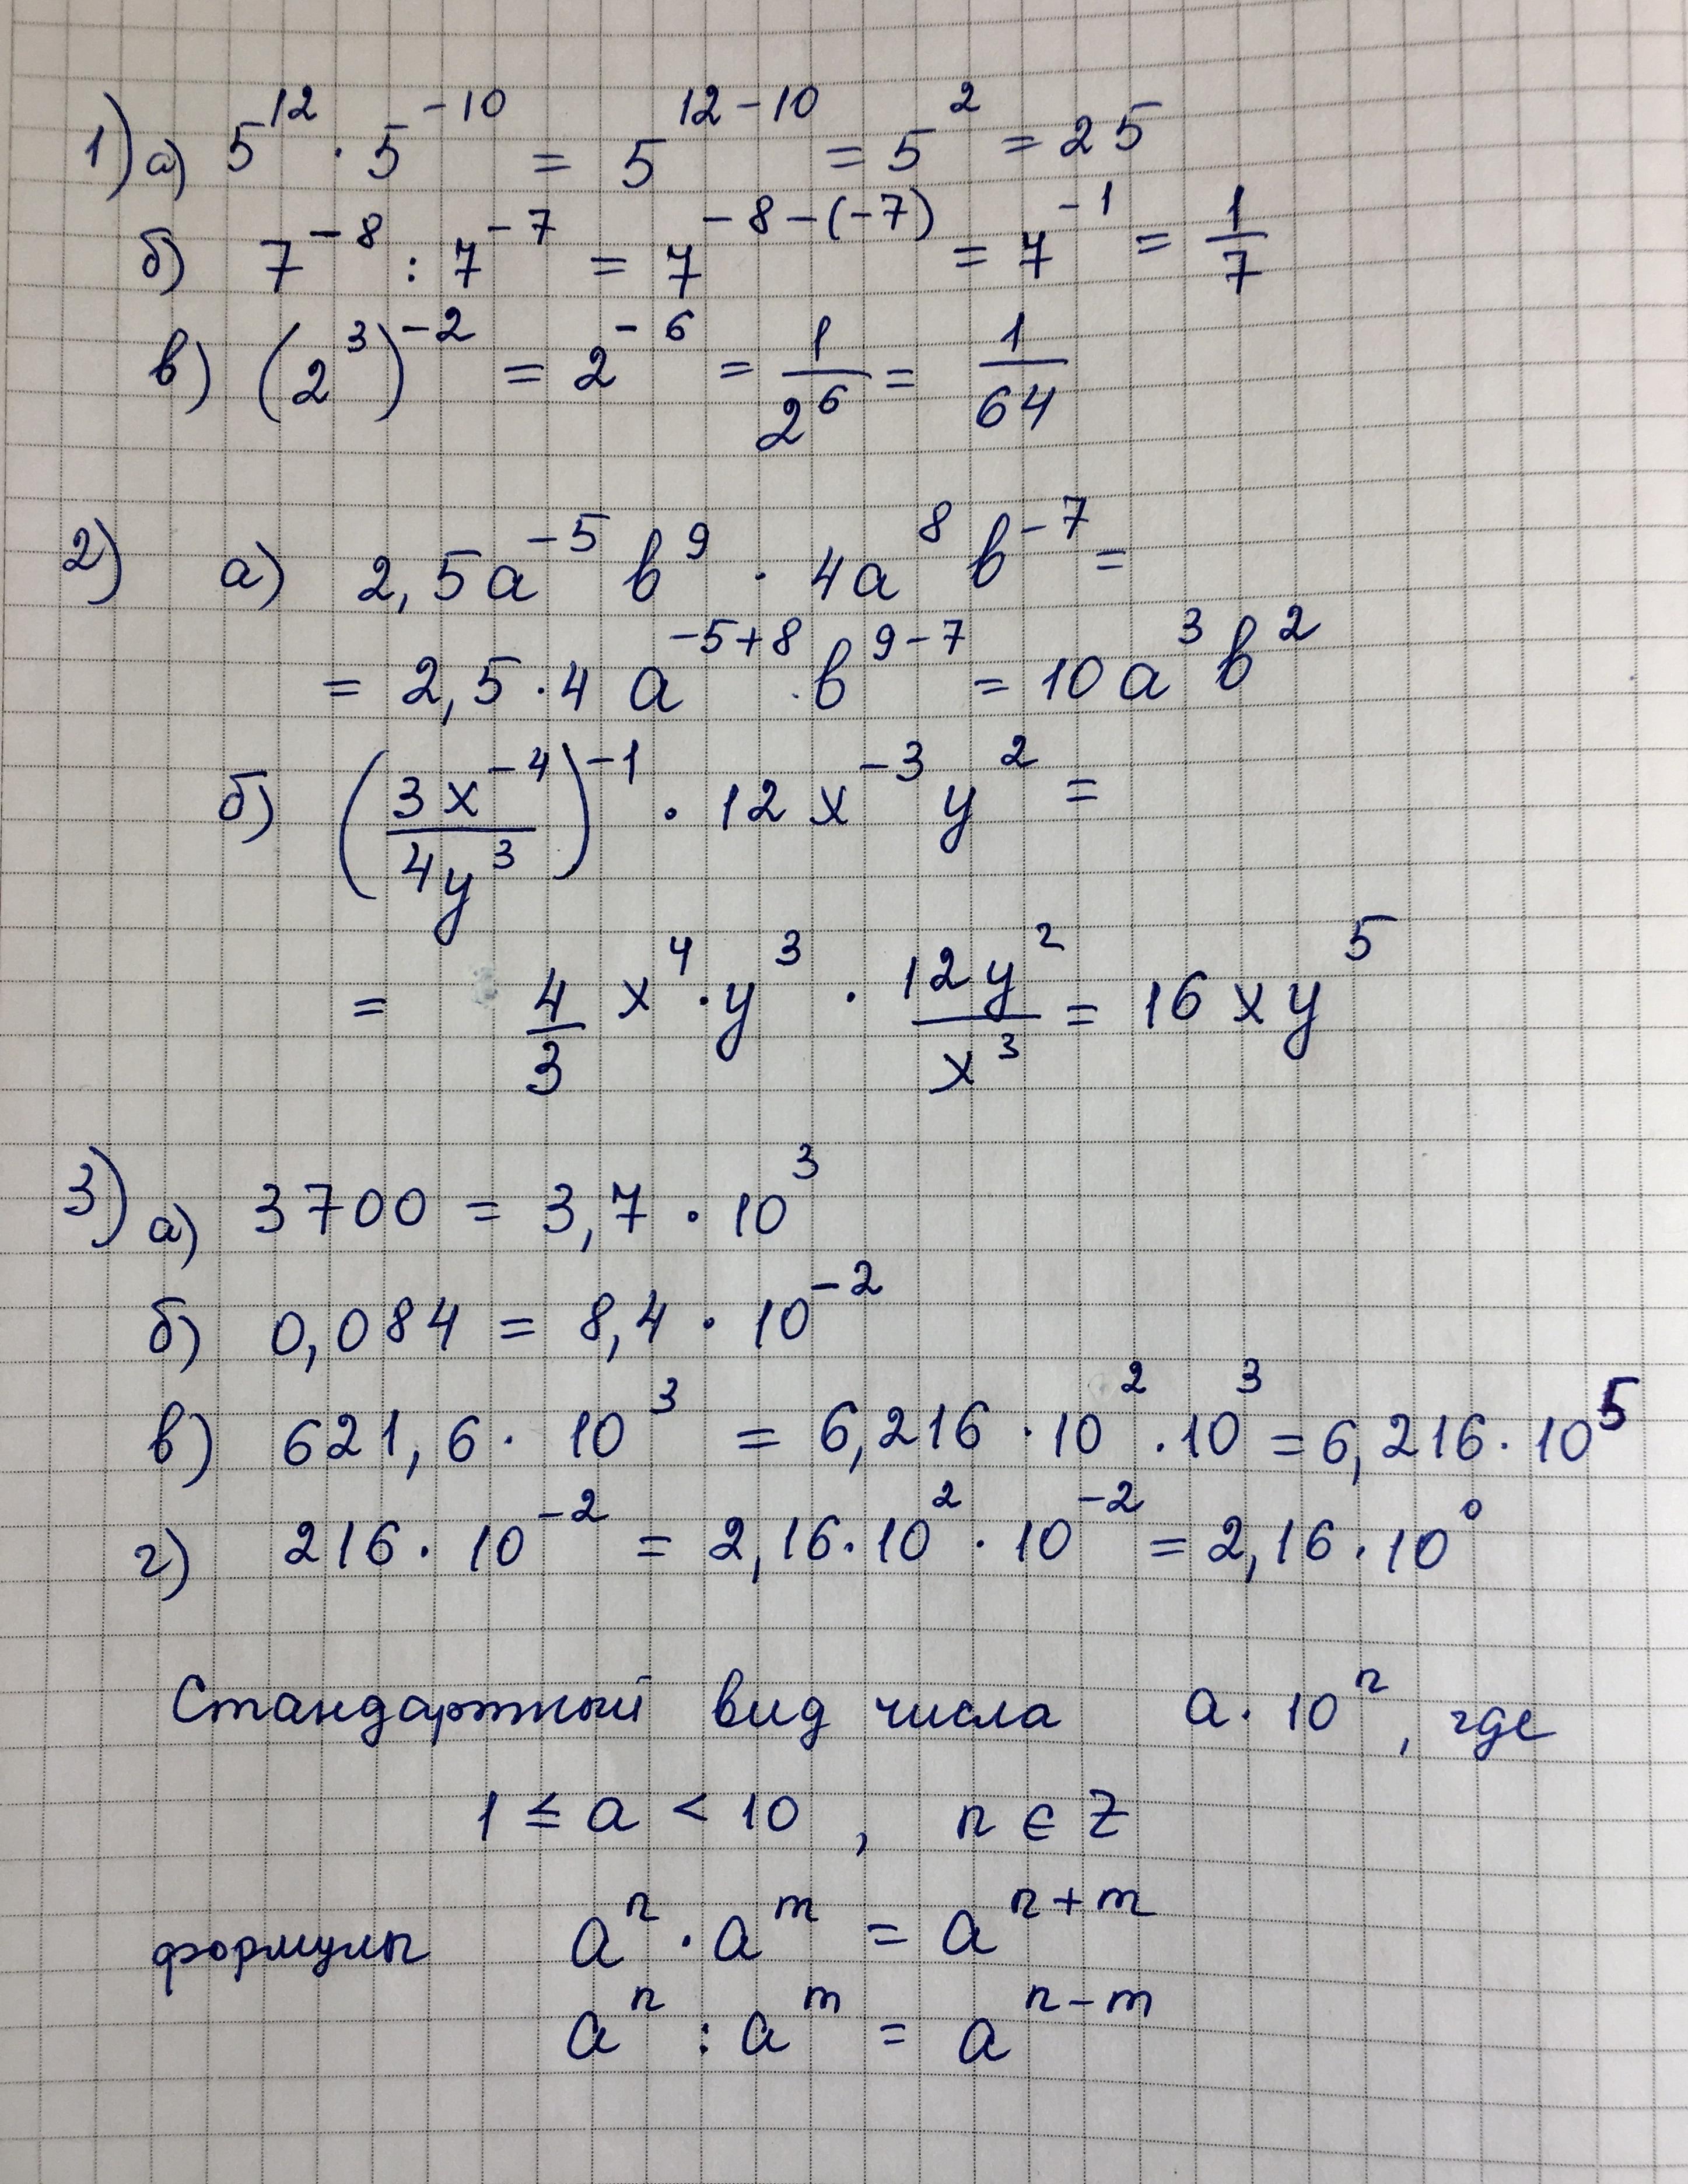 1) а) 5^12 · 5^-10 = 5^12-10 = 5^2 = 25
б) 7^-8 : 7^-7 = 7^-8-(-7) = 7^-1 = 1/7
в) (2^3)^-2 = 2^-6 = 1/2^6 = 1/64
2) а) 2,5a^-5 b^9 · 4a^8 b^-7 =
= 2,5·4 a^-5+8 · b^9-7 = 10a^3 b^2
б) (3x^-4/4y^3)^-1 · 12x^-3 y^2 =
= 4/3 x^4 · y^3 · 12y^2/x^3 = 16xy^5
3) а) 3700 = 3,7 · 10^3
б) 0,084 = 8,4 · 10^-2
в) 621,6 · 10^3 = 6,216 · 10^2 · 10^3 = 6,216 · 10^5
г) 216 · 10^-2 = 2,16 · 10^2 · 10^-2 = 2,16 · 10^0
Стандартный вид числа a · 10^n, где
1 ≤ a < 10, n ∈ Z
формулы a^n · a^m = a^n+m
a^n : a^m = a^n-m